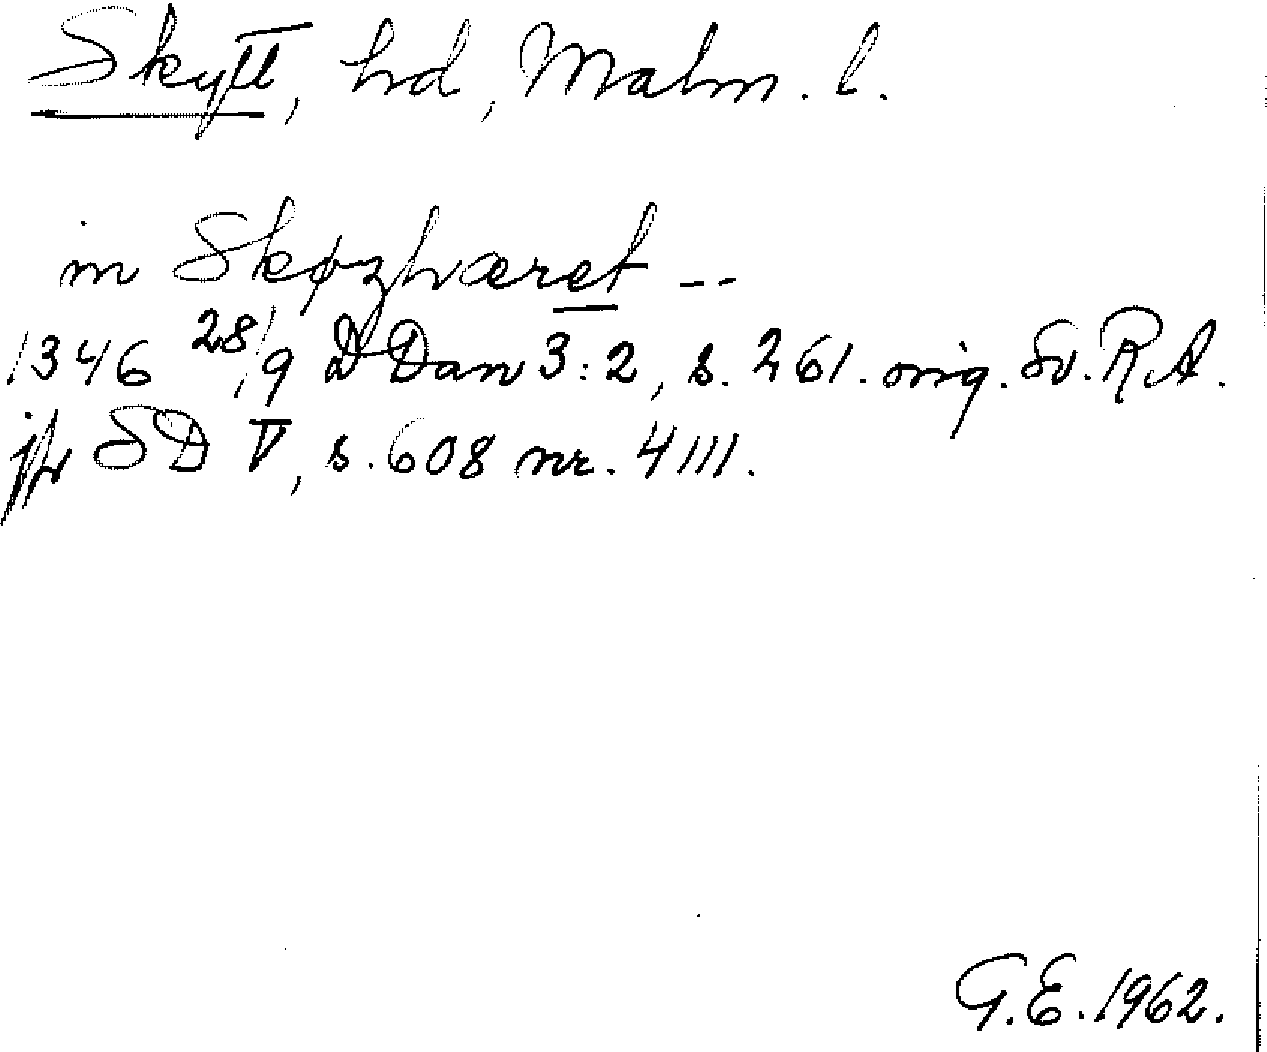 Skytt, hd, Malm. l.
in Skøzhæret --
1346 28/9 DDan 3:2, s. 261. orig. Sv. RA.
jfr SD V, s. 608 nr. 4111.
G.E. 1962.